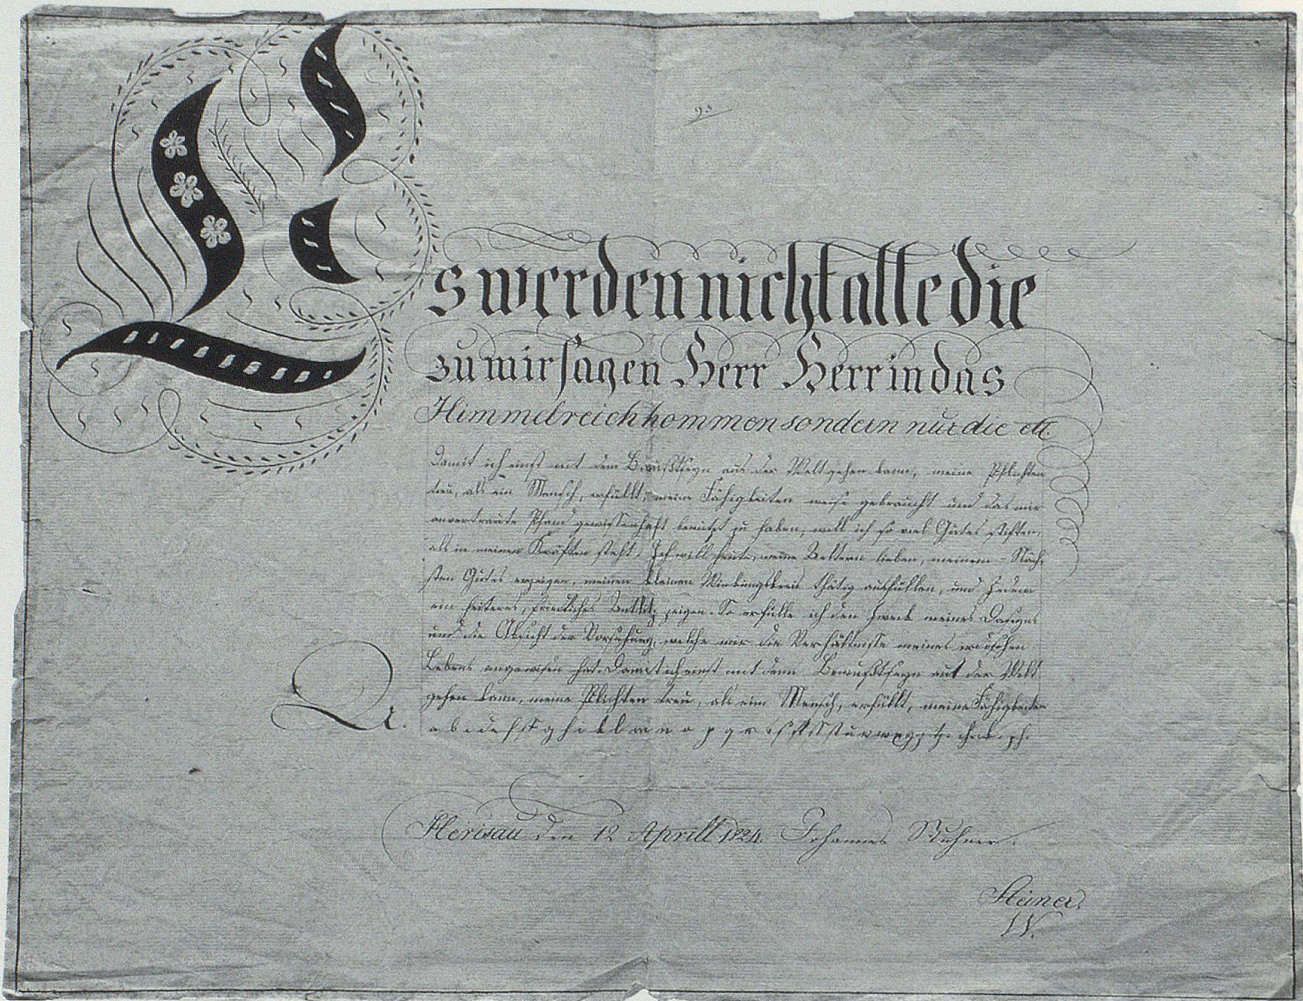 93
Es werden nicht alle die
zu mir sagen Herr Herr in das
Himmelreich kommen sondern nur die ett
Damit ich einst mit dem Bewußtseyn aus der Welt gehen kann, meine Pflichten
treu, als ein Mensch, erfüllt, meine Fähigkeiten weise gebraucht und das mir
anvertraute Pfand gewissenhaft benutzt zu haben, will ich so viel Gutes stiften,
als in meinen Kräften steht. Ich will heute, meine Eltern lieben, meinem Näch-
sten Gutes erzeigen, meinen kleinen Wirkungskreis thätig ausfüllen, und Jedem
ein heiteres, friedliches Antlitz zeigen. So erfülle ich den Zweck meines Daseyns
und die Absicht der Vorsehung, welche mir die Verhältnisse meines irdischen
Lebens angewiesen hat. Damit ich einst mit dem Bewußtseyn aus der Welt
gehen kann, meine Pflichten treu, als ein Mensch, erfüllt, meine Fähigkeiten
a b c d e f g h i k l m n o p q r s t u v w x y z
Herisau den 12 Aprill 1824. Johannes